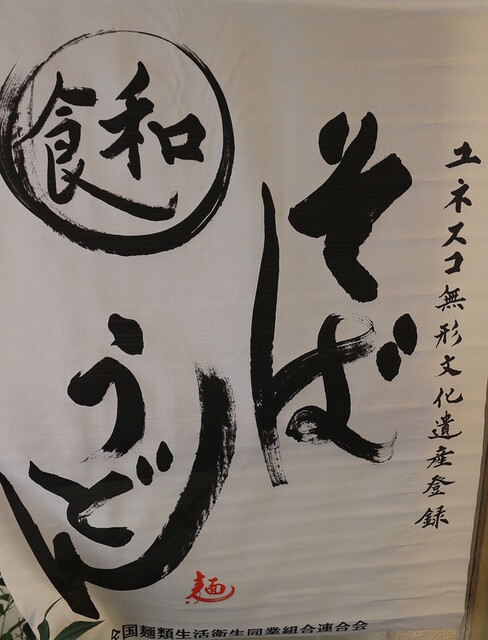 ユネスコ無形文化遺産登録
そば
和食
うどん
麺
国麺類生活衛生同業組合連合会